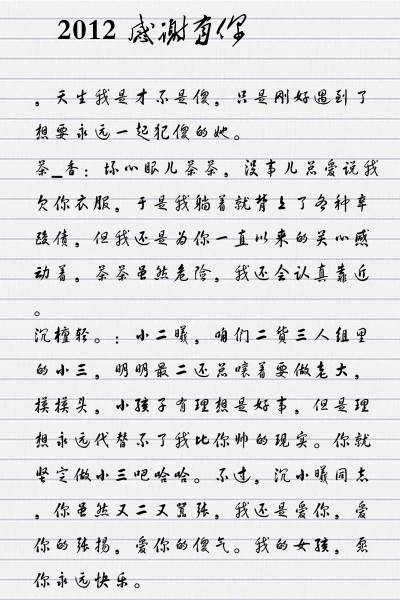 2012 感谢有你
，天生我是才不是傻，只是刚好遇到了
想要永远一起犯傻的她。
茶_香：坏心眼儿茶茶，没事儿总爱说我
欠你衣服，于是我躺着就背上了各种辛
酸债，但我还是为你一直以来的关心感
动着，茶茶虽然危险，我还会认真靠近
。
沉檀轻。：小二曦，咱们二货三人组里
的小三，明明最二还总嚷着要做老大，
摸摸头，小孩子有理想是好事，但是理
想永远代替不了我比你帅的现实。你就
坚定做小三吧哈哈。不过，沉小曦同志
，你虽然又二又嚣张，我还是爱你，爱
你的张扬，爱你的傻气。我的女孩，愿
你永远快乐。